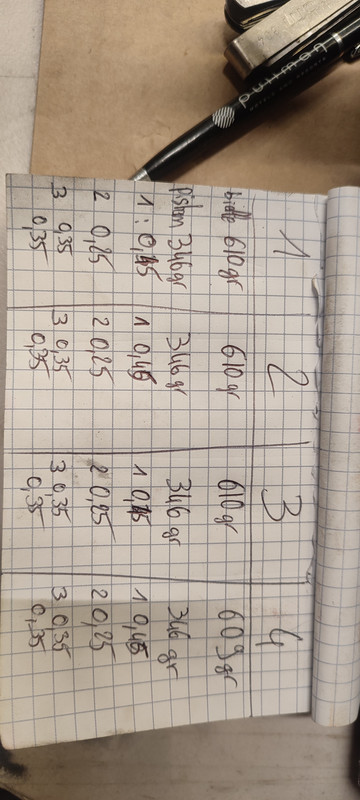 1 2 3 4
bielle 610gr 610gr 610gr 609gr
piston 346gr 346gr 346gr 346gr
1 : 0,45 1 0,45 1 0,45 1 0,45
2 0,25 2 0,25 2 0,25 2 0,25
3 0,35 3 0,35 3 0,35 3 0,35
0,35 0,35 0,35 0,35
pullman